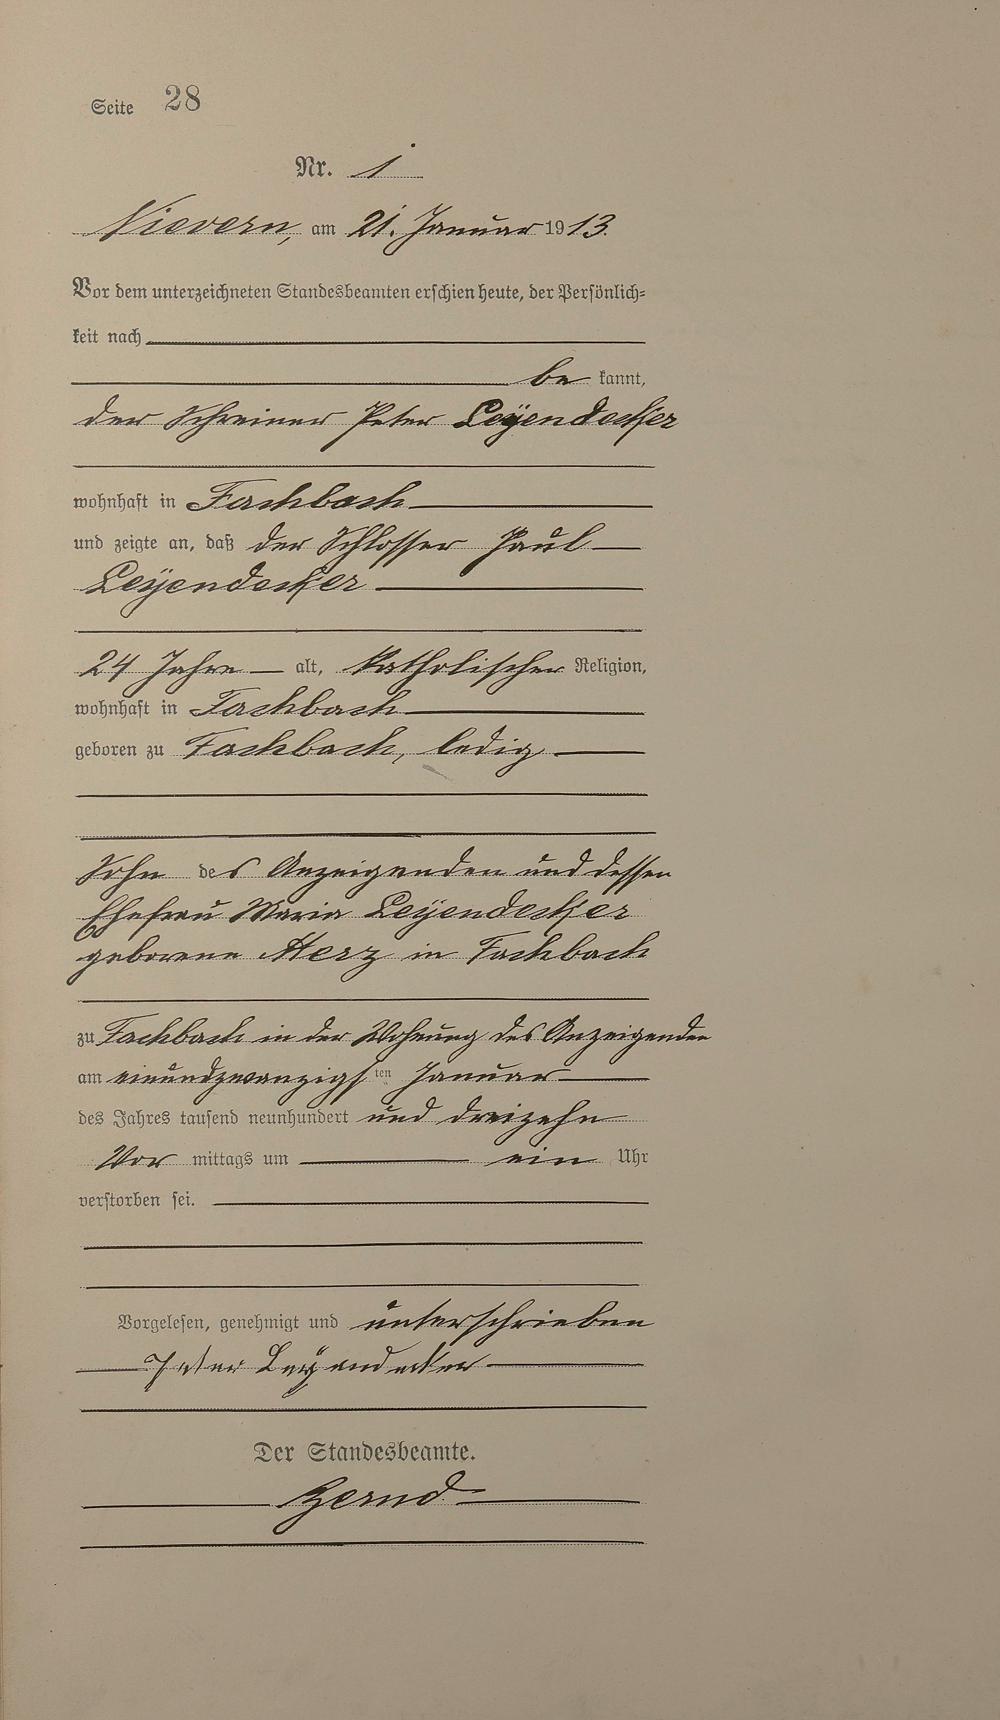 Seite 28
Nr. 1
Nievern, am 21. Januar 1913.
Vor dem unterzeichneten Standesbeamten erschien heute, der Persönlich-
keit nach
be kannt,
der Schreiner Peter Leÿendecker
wohnhaft in Fachbach
und zeigte an, daß der Schlosser Paul
Leÿendecker
24 Jahre alt, katholischer Religion,
wohnhaft in Fachbach
geboren zu Fachbach, ledig
Sohn des Anzeigenden und dessen
Ehefrau Maria Leÿendecker
geborene Herz in Fachbach
zu Fachbach in der Wohnung des Anzeigenden
am einundzwanzigsten Januar
des Jahres tausend neunhundert und dreizehn
Vor mittags um ein Uhr
verstorben sei.
Vorgelesen, genehmigt und unterschrieben
Peter Leÿendecker
Der Standesbeamte.
Zernd